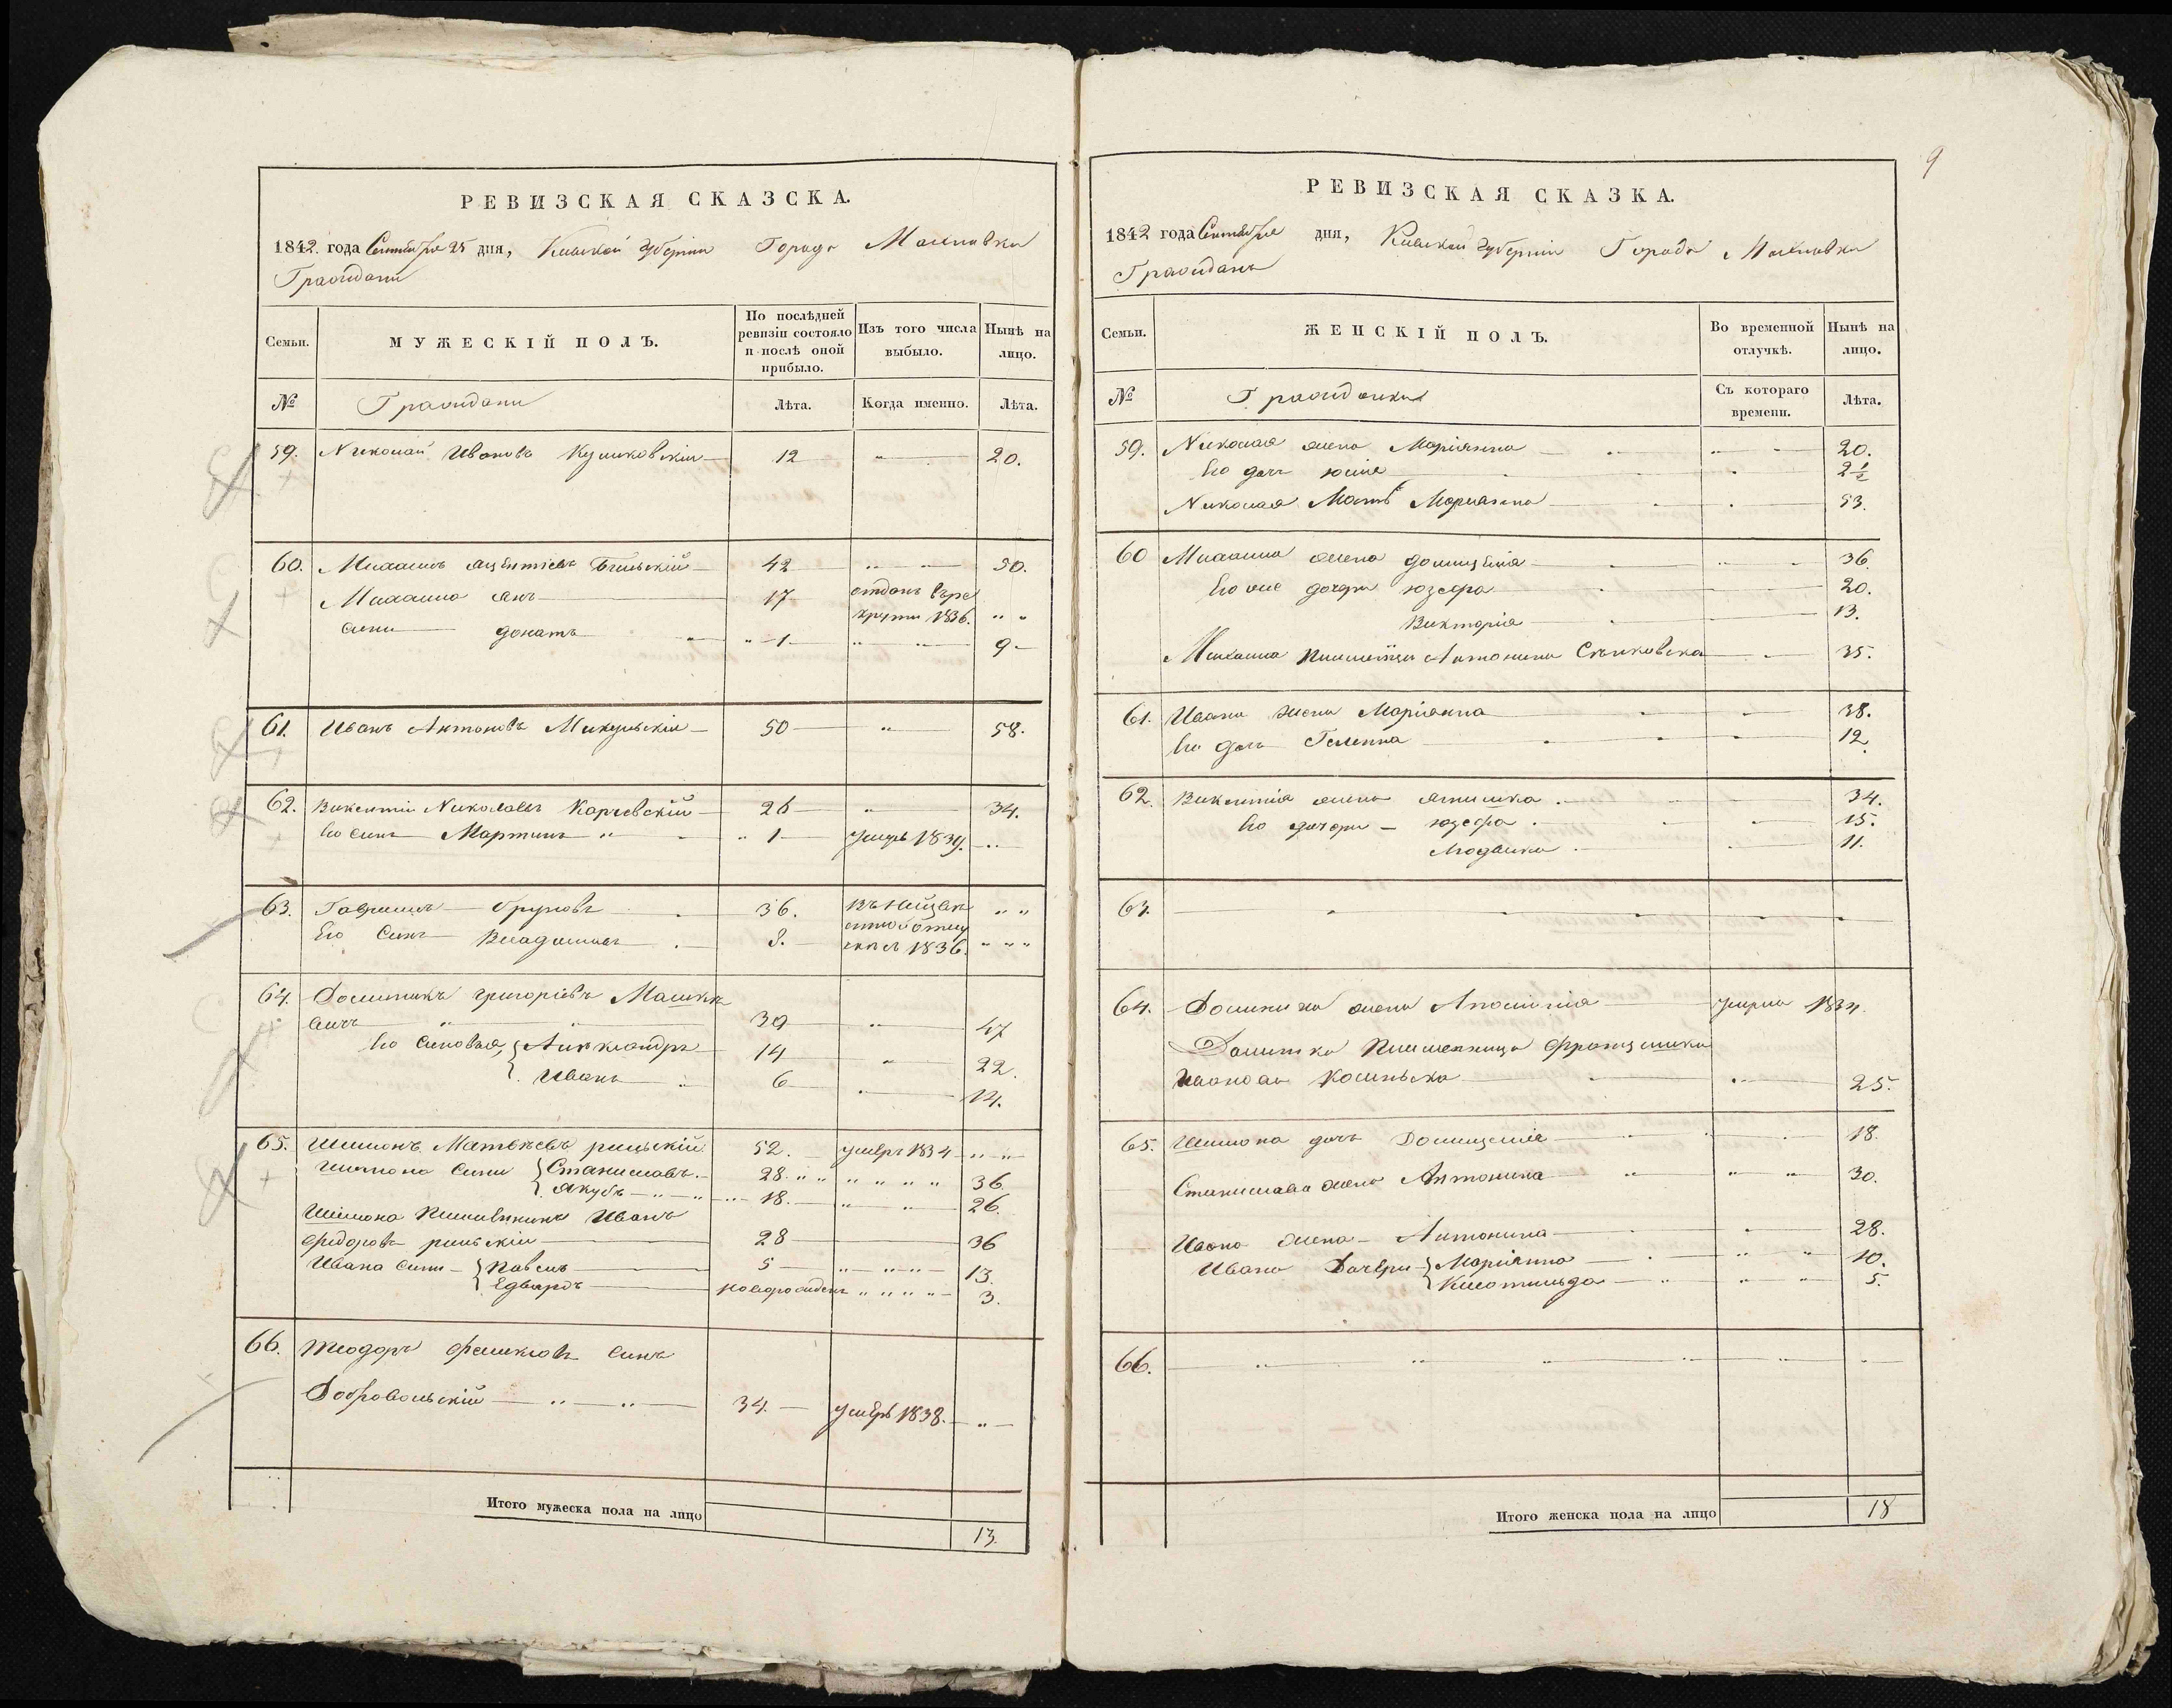 РЕВИЗСКАЯ СКАЗСКА.
1842. года Сентября 25 дня, Кіевской Губерніи Города Махновки
Граждане
Семьи.
МУЖЕСКІЙ ПОЛЪ.
По послѣдней ревизіи состояло и послѣ оной прибыло.
Изъ того числа выбыло.
Нынѣ на лицо.
№
Граждане
Лѣта.
Когда именно.
Лѣта.
59. Николай Ивановъ 12 20.
60. Михаилъ 42 50.
Михаила Янъ 17 отданъ въ ре
крути 1836.
сини донатъ 1 9
61. Иванъ Антоновъ Микульскій 50 58.
62. Викентій Николаевъ Карчевскій 26 34.
Его синъ Мартинъ 1 умеръ 1839.
63. Гаврииль 36.
Его Синъ Владиславъ 8. 1836.
64. Доминикъ григоріевъ
39 47
Его Синовья, Александръ 14 22.
Иванъ 6 14.
65. Шимонъ Матвѣевъ рильскій 52. умеръ 1834
Шимона Сини Станиславъ 28. 36.
Якубъ 18. 26.
Шимона Племѣнникъ Иванъ
Федоровъ рильскій 28 36
Ивана Сини Павелъ 5 13.
Едвардъ новорожденъ 3.
66. Теодоръ синъ
Добровольскій 34. умеръ 1838.
Итого мужеска пола на лицо
13.
9
РЕВИЗСКАЯ СКАЗКА.
1842 года Сентября дня, Кіевской Губерніи Города Махновки
Граждане
Семьи.
ЖЕНСКІЙ ПОЛЪ.
Во временной отлучкѣ.
Нынѣ на лицо.
№
Гражданки
Съ котораго времени.
Лѣта.
59. Николая жена Маріянна 20.
Его дочь Юлія 2½
Николая Мать Маріянна 53.
60 Михаила жена Домицеля 36.
Его же дочери Юзефа 20.
Викторія 13.
Михаила Антонина 35.
61. Ивана жена Маріянна 38.
Его дочь Гелена 12.
62. Викентія жена Агнишка 34.
Его дочери Юзефа 15.
11.
63.
64. Доминика жена Аполонія умерла 1834.
Доминика Племенница Францишка
Иванова 25.
65. Шимона дочь Домицелія 18.
Станислава жена Антонина 30.
Ивана жена Антонина 28.
Ивана Дочери Маріянна 10.
Клотильда 5.
66.
Итого женска пола на лицо
18